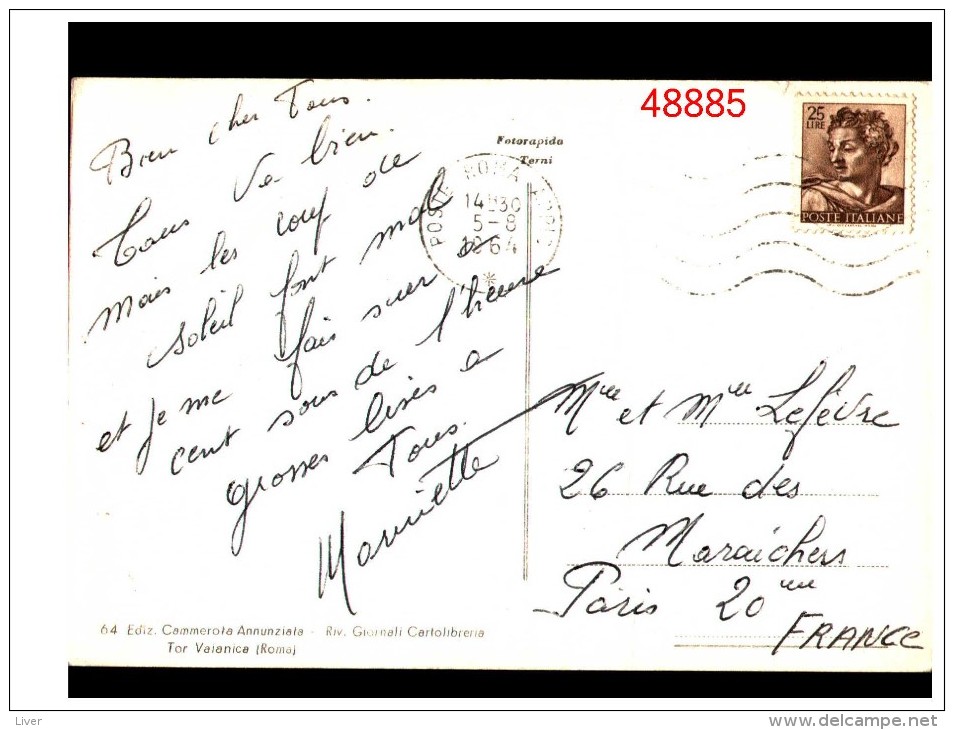 48885
25
LIRE
POSTE ITALIANE
Fotorapida
Terni
POSTE ROMA
14 30
5-8
1964
Bien cher Tous.
Tous va bien.
mais les coup de
soleil font mal
et je me fais suer a
cent sous de l'heure
grosses bises a
Tous.
Marinette
Mme et Mlle Lefèvre
26 Rue des
Maraichers
Paris 20eme
FRANCE
64 Ediz. Cammerota Annunziata - Riv. Giornali Cartolibreria
Tor Vaianica (Roma)
Liver
www.delcampe.net